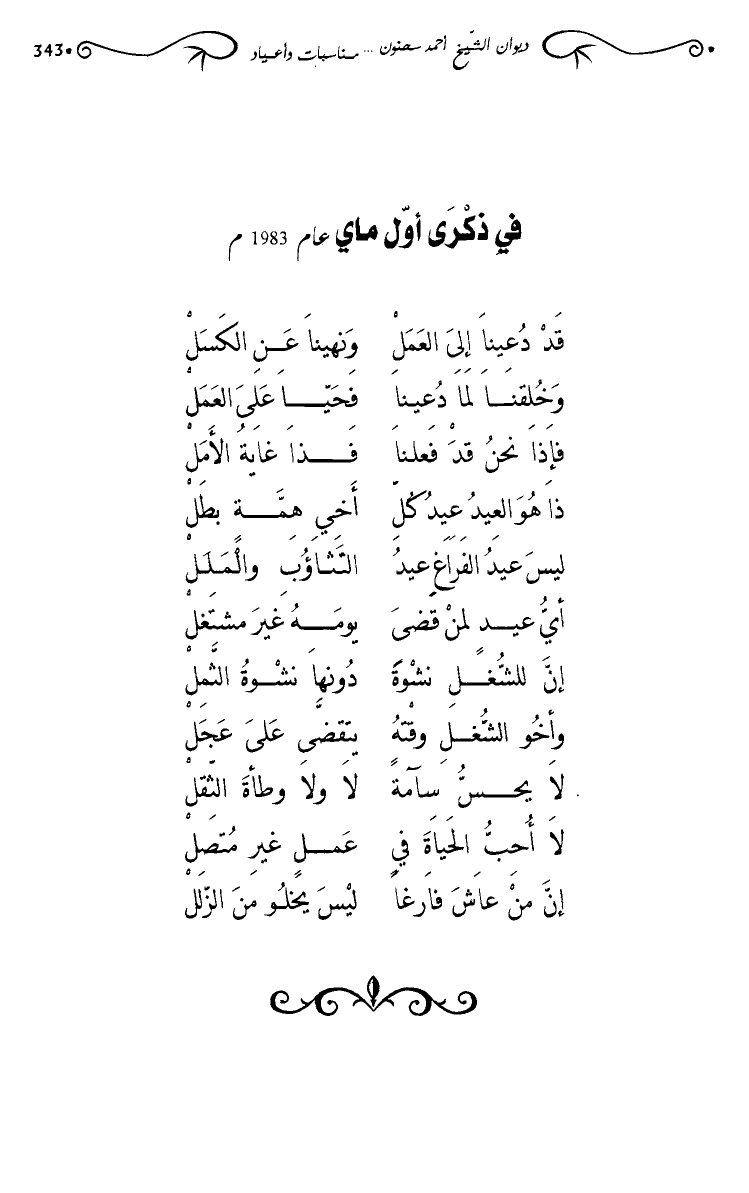 ديوان الشّيخ أحمد سحنون ... مناسبات وأعياد 343
في ذكْرَى أوّل ماي عام 1983 م
قَدْ دُعينَا إلىَ العَمَلْ وَنهينَا عَـنِ الكَسَلْ
وَخُلِقنَـا لِمَا دُعينَا فَحَيَّـا عَلَى العَمَلْ
فإذَا نحنُ قدْ فعلنَا فَـذَا غايَةُ الأَمَلْ
ذا هُوَ العيدُ عيدُ كُلِّ أَخي همَّـةٍ بطَلْ
ليسَ عيدُ الفرَاغِ عيدُ التَّثَـاؤُبِ والْمَلَلْ
أيُّ عيـدٍ لمنْ قَضَى يومَـهُ غيرَ مشتَغلْ
إنَّ للشُّغـلِ نشْوَةً دُونهَا نشْـوَةُ الثَّملْ
وأخُو الشُّغـلِ وقتُهُ يتقضَّى عَلَى عَجَلْ
لاَ يحـسُّ سآمَةً لاَ ولاَ وطأةَ الثِّقَلْ
لاَ أُحبُّ الحَيَاةَ في عَمـلٍ غيرِ مُتصَلْ
إنَّ منْ عاشَ فارغًا ليْسَ يخلُـو منَ الزّللْ